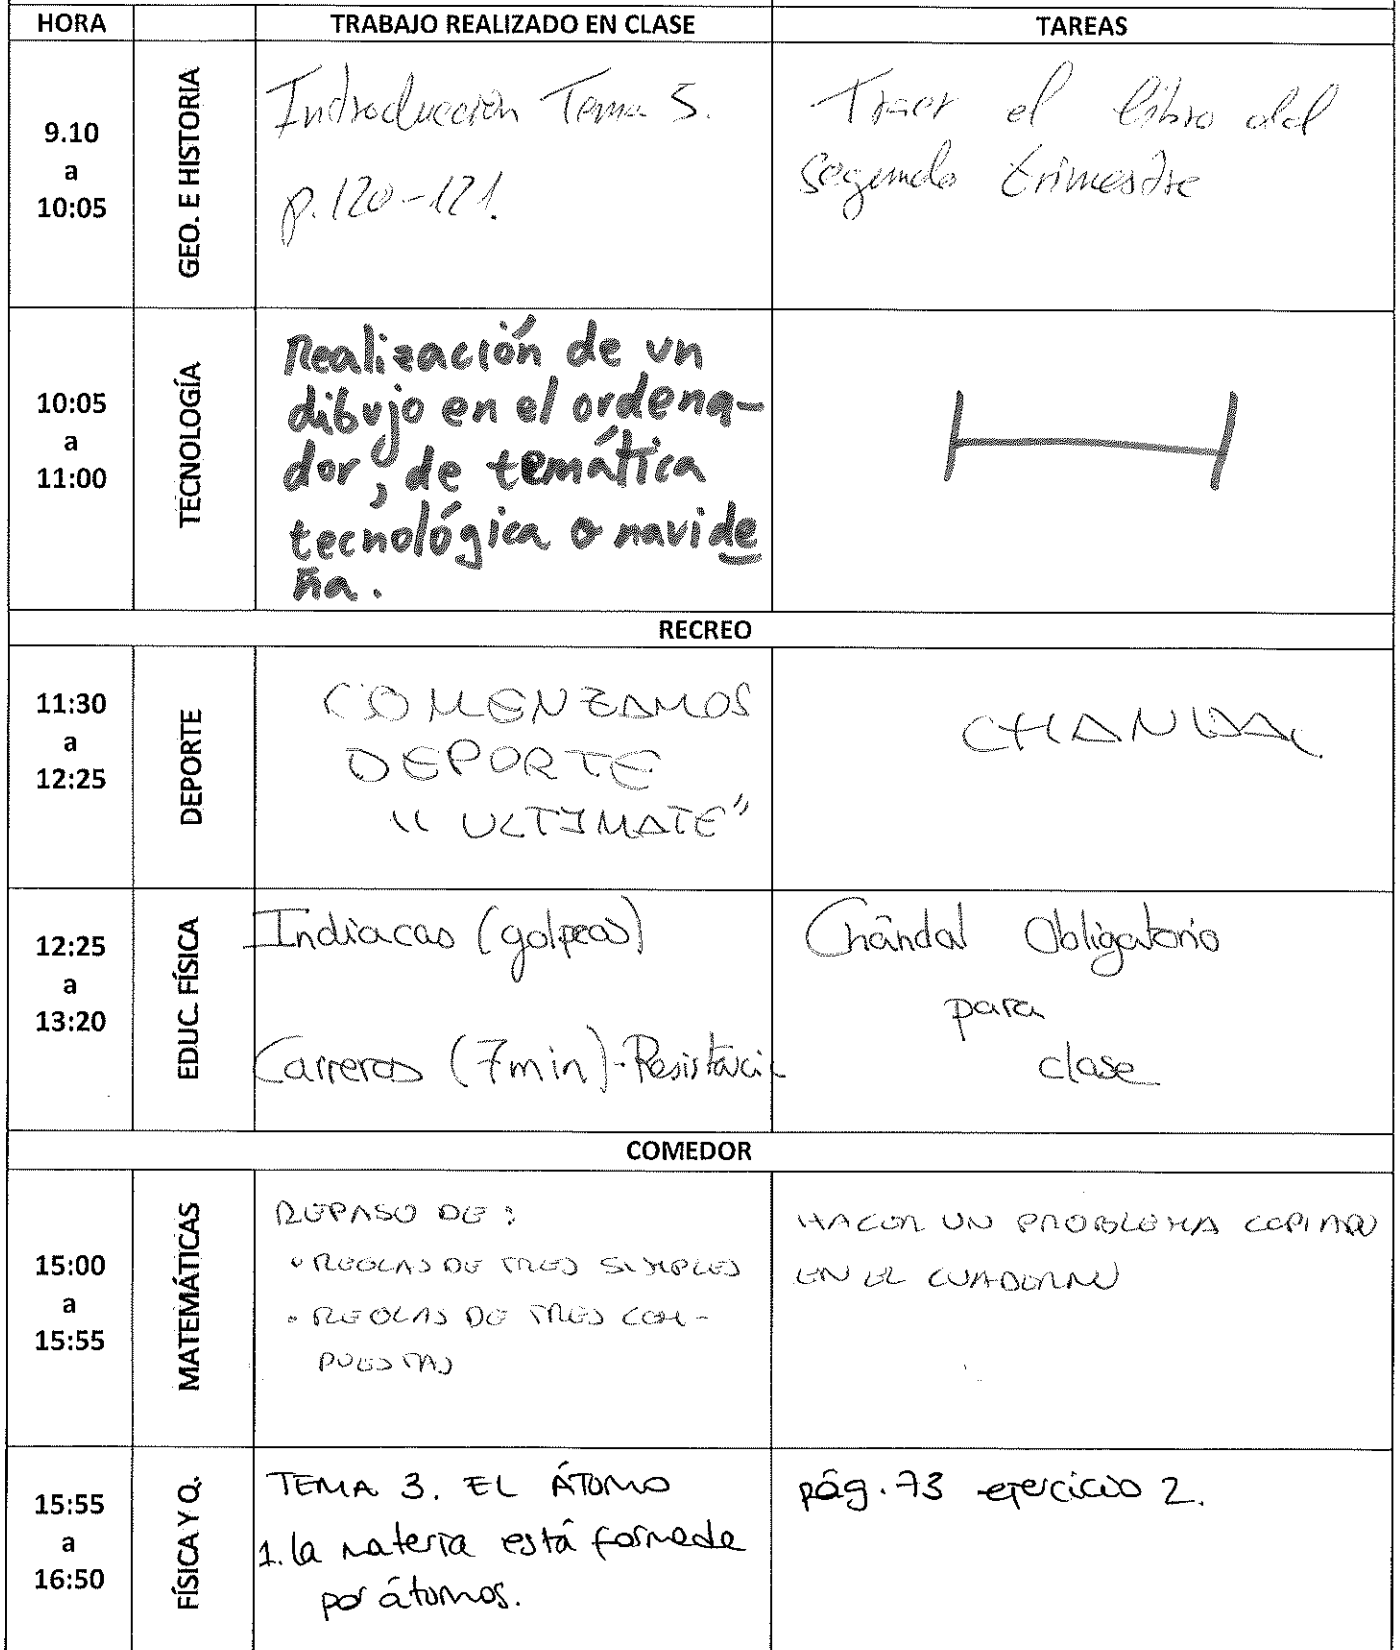 HORA TRABAJO REALIZADO EN CLASE TAREAS
9.10
a
10:05
GEO. E HISTORIA
Introducción Tema 5.
p.120-121.
Traer el libro del
segundo trimestre
10:05
a
11:00
TECNOLOGÍA
Realización de un
dibujo en el ordena-
dor, de temática
tecnológica o navide
ña.
RECREO
11:30
a
12:25
DEPORTE
COMENZAMOS
DEPORTE
"ULTIMATE"
CHANDAL
12:25
a
13:20
EDUC. FÍSICA
Indiacas (golpeos)
Carreras (7min)-Resistencia
Chándal Obligatorio
para
clase
COMEDOR
15:00
a
15:55
MATEMÁTICAS
REPASO DE:
• REGLAS DE TRES SIMPLES
• REGLAS DE TRES COM-
PUESTAS
HACER UN PROBLEMA COPIADO
EN EL CUADERNO
15:55
a
16:50
FÍSICA Y Q.
TEMA 3. EL ÁTOMO
1. la materia está formada
por átomos.
pág. 73 ejercicio 2.